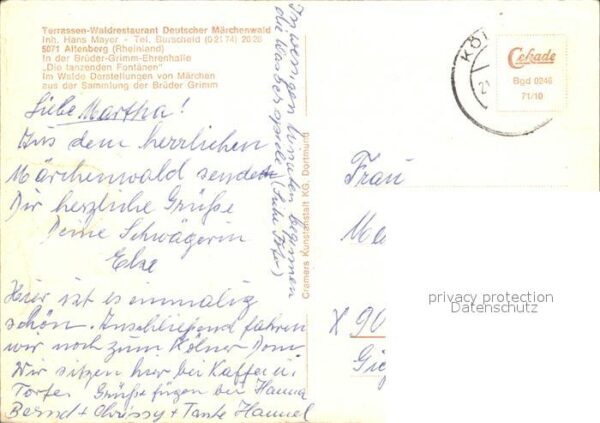 Terrassen-Waldrestaurant Deutscher Märchenwald
Inh. Hans Mayer - Tel. Burscheid (0 21 74) 20 26
5071 Altenberg (Rheinland)
In der Brüder-Grimm-Ehrenhalle
„Die tanzenden Fontänen"
Im Walde Darstellungen von Märchen
aus der Sammlung der Brüder Grimm
Liebe Martha!
Aus dem herrlichen
Märchenwald sendet
Dir herzliche Grüße
Deine Schwägerin
Else
Hier ist es einmalig
schön. Anschließend fahren
wir noch zum Kölner Dom
Wir sitzen hier bei Kaffee u.
Torte. Grüße fügen bei Hanna
Bernd + Chrissy + Tante Hannel
In wenigen Minuten beginnen
die Wasserspiele (siehe Foto)
Cramers Kunstanstalt KG, Dortmund
KÖL
Cekade
Bgd 0246
71/10
Frau
Ma
X 90
privacy protection
Datenschutz